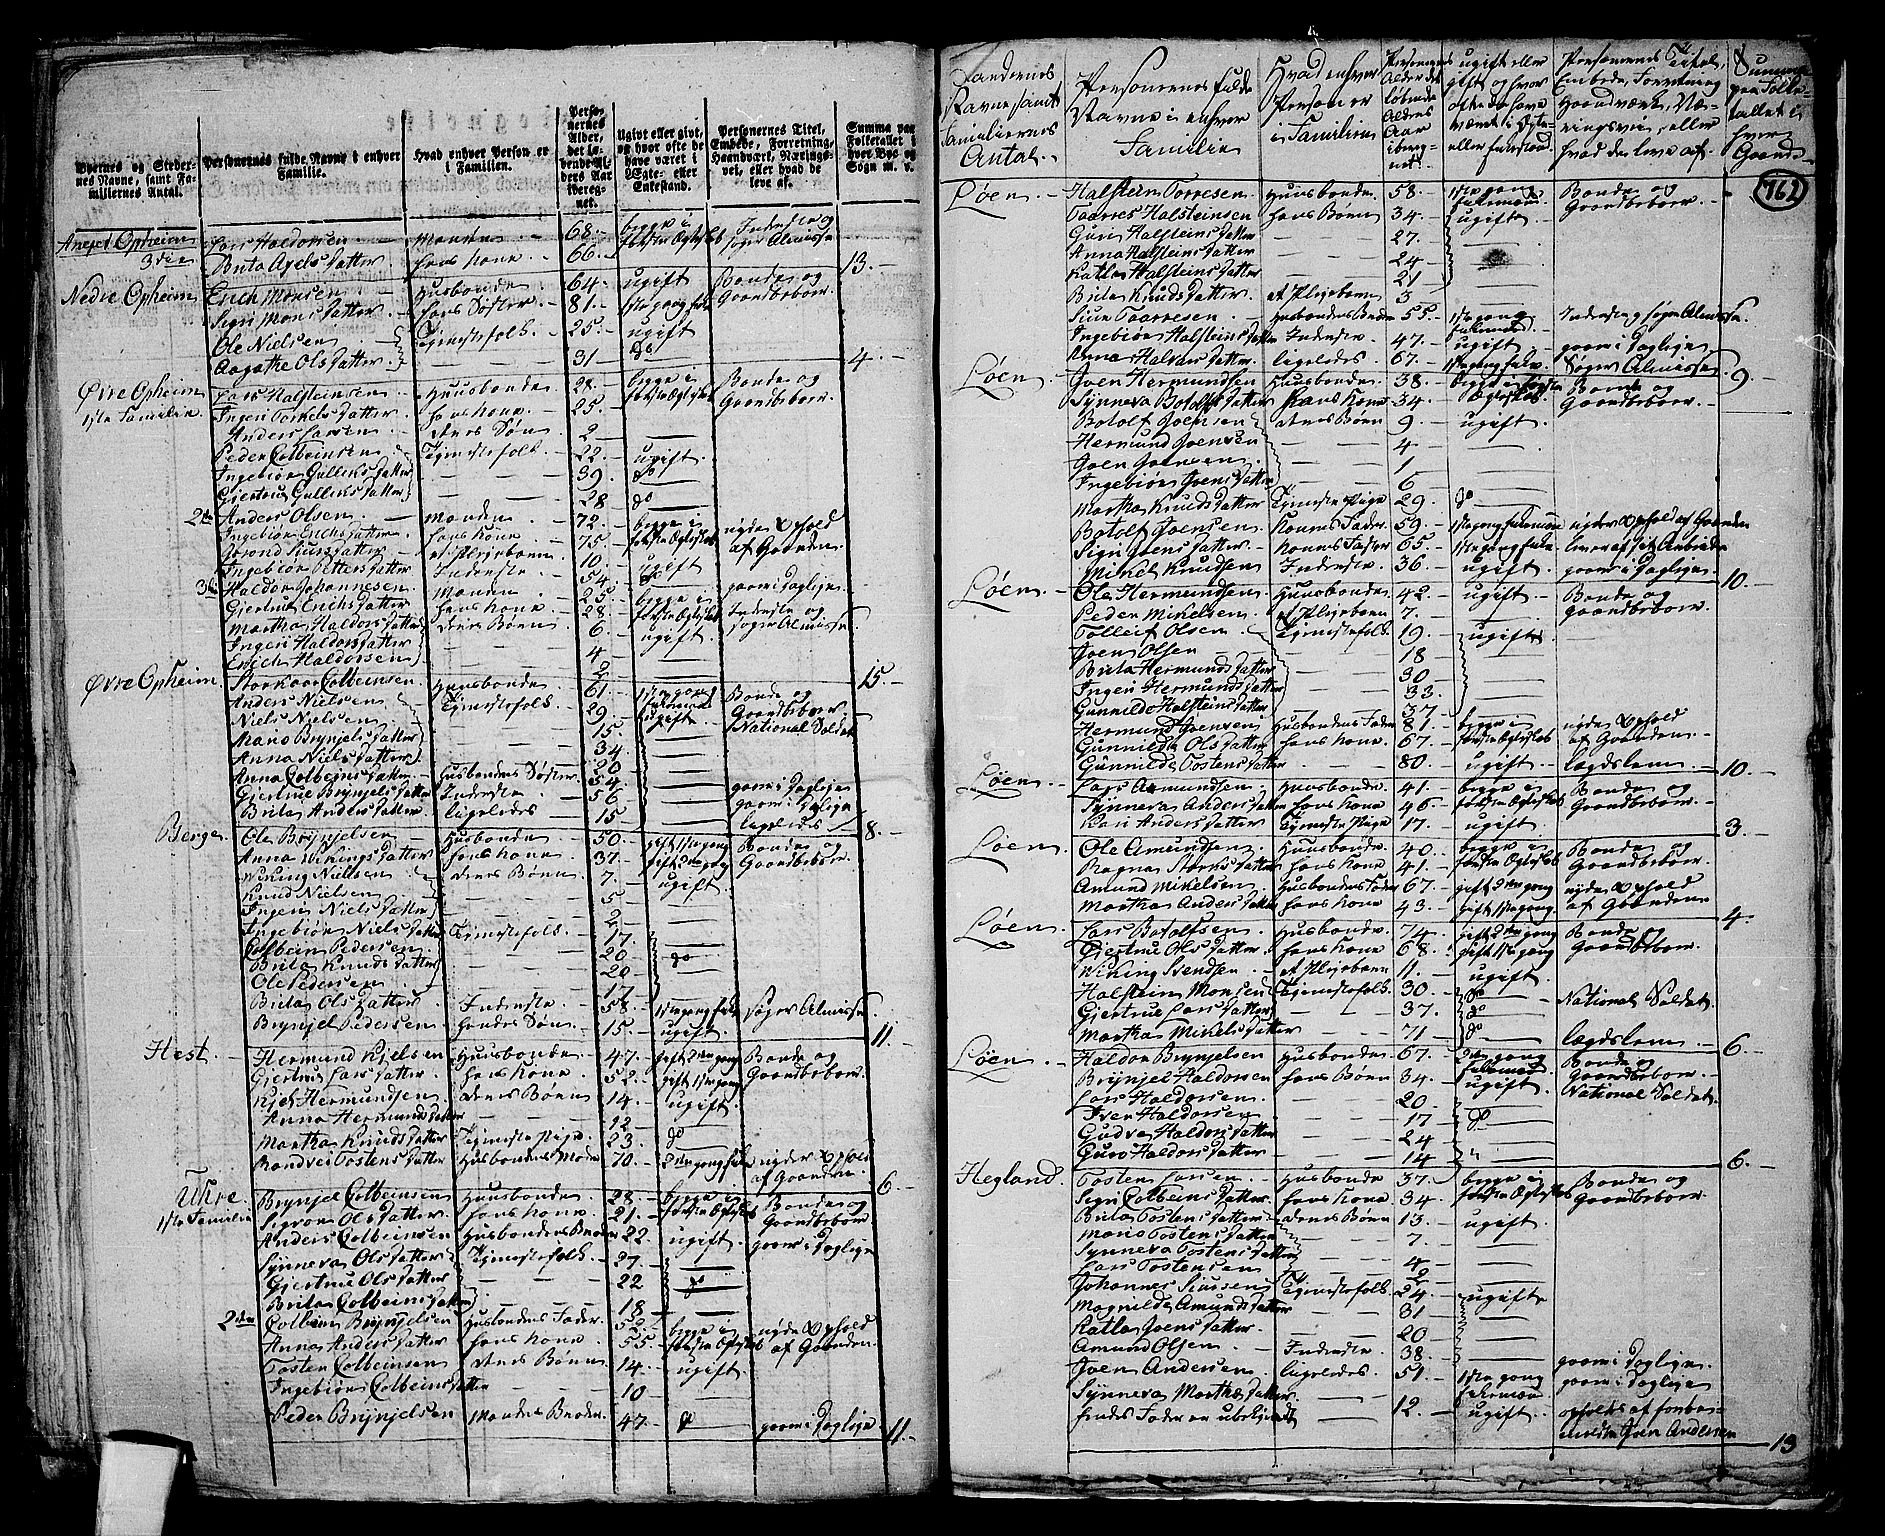 Byernes og Stedernes Navne, samt Familiernes Antal.
Personernes fulde Navne i enhver Familie.
Hvad enhver Person er i Familien.
Personernes Alder, det løbende Alders Aar iberegnet.
Ugivt eller givt, og hvor ofte de have været i Ægte- eller Enkestand.
Personernes Titel, Embede, Forretning, Haandværk, Nærings-vei, eller hvad de leve af.
Summa paa Folketallet i hver Bye og Sogn m. v.
Opheim 3die Lars Haldorsen Manden 68 begge i første Ægteskab Inderste og søger Almisse
Brita Axelsdatter hans Kone 66 13
Nedre Opheim Erich Monsen Huusbonde 64 ugift Bonde og Gaardbeboer
Sigri Monsdatter hans Søster 81
Ole Nielsen Tjenestefolk 25 ugift
Aagathe Olsdatter 31 do 4
Øvre Opheim 1ste Familie Lars Halsteinsen Huusbonde 28 begge i første Ægteskab Bonde og Gaardbeboer
Ingeri Torkelsdatter hans Kone 25
Anders Larsen deres Søn 2
Peder Colbeinsen Tjenestefolk 22 ugift
Ingebiør Gulliksdatter 39 do
Giertrue Gulliksdatter 28 do
2den Anders Olsen Manden 72 begge i første Ægteskab nyder Ophold af Gaarden
Ingebiør Erichsdatter hans Kone 75
Siursdatter et Plejebarn 10
Ingebiør Pettersdatter Inderste 54 ugift
3die Haldor Johannesen Manden 25 begge i første Ægteskab Inderste og søger Almisse
Giertrue Erichsdatter hans Kone 28
Martha Haldorsdatter deres Børn 6 ugift
Ingeri Haldorsdatter 4
Erich Haldorsen 2 15
Øvre Opheim Storkaar Colbeinsen Huusbonde 61 Bonde og Gaardbeboer
Anders Nielsen Tjenestefolk 29 ugift National Soldat
Niels Nielsen 15
Mario Brynjelsdatter 34
Anna Nielsdatter 20
Anna Colbeinsdatter Husbondens Søster 54
Giertrue Brynjelsdatter Inderste 56
Brita Andersdatter ligeledes 15 ligeledes 8
Berge Ole Brynjelsen Husbonde 50 gift 1ste gang Bonde og Gaardbeboer
Anna Wikingsdatter hans Kone 37 gift 2den gang
Wiking Nielsen deres Børn 7 ugift
Knud Nielsen 5
Ingeri Nielsdatter 2
Ingebiør Nielsdatter Tjenestefolk 17
Colbein Pedersen 20 do
Brita Knudsdatter 20
Ole Pedersen 17
Brita Olsdatter Inderste 58 søger Almisse
Brynjel Pedersen hendes Søn 15 ugift 11
Hest Hermund Kjelsen Huusbonde 47 gift 2den gang Bonde og Gaardbeboer
Giertrue Larsdatter hans Kone 52 gift 1ste gang
Kjel Hermundsen deres Børn 14 ugift
Anna Hermundsdatter 12
Martha Knudsdatter Tjeneste Pige 23 do
Randvei Tostensdatter Husbondens Moder 70 nyder Ophold af Gaarden 6
Ukre 1ste Familie Brynjel Colbeinsen Huusbonde 28 begge i første Ægteskab Bonde og Gaardbeboer
Olsdatter hans Kone 21
Anders Colbeinsen Husbondens Broder 22 ugift
Synneva Olsdatter Tjenestefolk 27
Giertrue Olsdatter 22 do
Brita Colbeinsdatter 18
2den Colbein Brynjelsen Husbondens Fader 52 begge i første Ægteskab nyde Ophold af Gaarden
Anna Andersdatter hans Kone 55
Tosten Colbeinsen deres Børn 14 ugift
Ingebiør Colbeinsdatter 10
Peder Brynjelsen Mandens Broder 47 do 11
Gaardernes Navne samt Familiernes Antal
Personernes fulde Navne i enhver Familie
Hvad enhver Person er i Familien
Personernes Alder det løbende Alders Aar iberegnet
ugift eller gift og hvor ofte de have været i Ægte- eller Enkestand
Personernes Titel, Embede, Forretning Haandværk, Næringsvei, eller hvad de leve af
Summa paa Folketallet i hver Gaard
762
Løen Halstein Torresen Huusbonde 58 Bonde og Gaardbeboer
Taarres Halsteinsen hans Børn 34 ugift
Guri Halsteinsdatter 27
Anna Halsteinsdatter 24
Katla Halsteinsdatter 21
Brita Knudsdatter et Plejebarn 3
Siur Taarresen Husbondens Broder 55 Inderste og søger Almisse
Ingebiør Halsteinsdatter Inderste 47 ugift
Anna Halvarsdatter ligeledes 67 Søger Almisse 9
Løen Joen Hermundsen Huusbonde 38 begge i første Ægteskab Bonde og Gaardbeboer
Synneva Botolfsdatter hans Kone 34
Botolf Joensen deres Børn 9 ugift
Hermund Joensen 4
Joen Joensen 1
Ingebiør Joensdatter 6
Martha Knudsdatter Tjeneste Pige 29 do
Botolf Joensen Konens Fader 59 nyder Ophold af Gaarden
Sigri Joensdatter Konens Faster 65
Mikel Knudsen Inderste 36 ugift 10
Løen Ole Hermundsen Huusbonde 42 ugift Bonde og Gaardbeboer
Peder Mikelsen et Plejebarn 7
Tolleif Olsen Tjenestefolk 19 ugift
Joen Olsen 18
Brita Hermundsdatter 30
Ingeri Hermundsdatter 33
Gunnilde Halsteinsdatter 37
Hermund Joensen Husbondens Fader 81 begge i første Ægteskab nyde Ophold af Gaarden
Gunnilde Olsdatter hans Kone 67
Gunnilde Tostensdatter 80 ugift Lægdslem 10
Løen Lars Amundsen Huusbonde 41 begge i første Ægteskab Bonde og Gaardbeboer
Synneva Andersdatter hans Kone 46
Kari Andersdatter Tjeneste Pige 17 ugift 3
Løen Ole Amundsen Huusbonde 40 begge i første Ægteskab Bonde og Gaardbeboer
Ragna Storksdatter hans Kone 41
Amund Mikelsen Husbondens Fader 67 gift 2den gang nyde Ophold af Gaarden
Martha Andersdatter hans Kone 43 gift 1ste gang 4
Løen Lars Botolfsen Husbonde 74 gift 2den gang Bonde og Gaardbeboer
Giertrue Olsdatter hans Kone 68 gift 1ste gang
Wiking Svendsen et Plejebarn 11 ugift
Halstein Monsen Tjenestefolk 30 do National Soldat
Giertrue Larsdatter 37 do
Martha Mikelsdatter 71 do Lægdslem 6
Løen Haldor Brynjelsen Husbonde 67 Bonde og Gaardbeboer
Brynjel Haldorsen hans Børn 34 ugift National Soldat
Lars Haldorsen 20
Iver Haldorsen 17 do
Gudva Haldorsdatter 24
Guro Haldorsdatter 14 6
Hegland Tosten Larsen Husbonde 37 begge i første Ægteskab Bonde og Gaardbeboer
Sigri Colbeinsdatter hans Kone 34
Brita Tostensdatter deres Børn 13 ugift
Mario Tostensdatter 7
Synneva Tostensdatter 4
Lars Tostensen 2
Johannes Siursen Tjenestefolk 24 ugift
Magnilda Amundsdatter 31
Katla Joensdatter 20
Amund Olsen Inderste 38
Joen Andersen ligeledes 51
Synneva Marthedatter 12 ugift
hendes Fader er ubekjendt
Joen Andersen 13